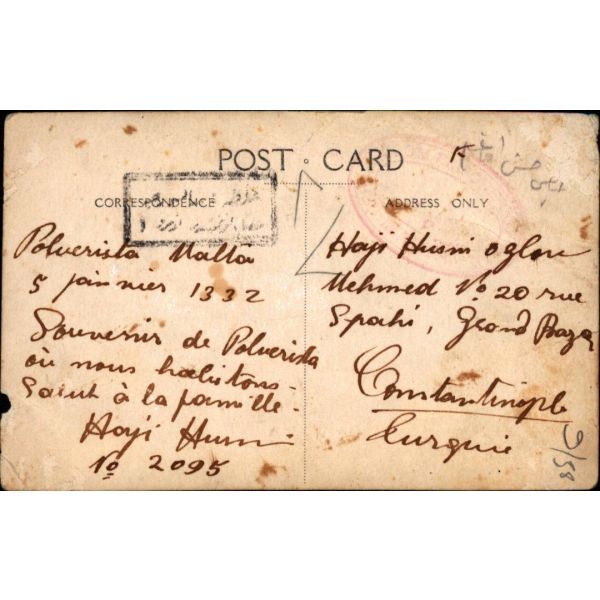 POST CARD
CORRESPONDENCE
ADDRESS ONLY
Polverista Malta
5 jannier 1332
Souvenir de Polverista
où nous habitons -
Salut à la famille -
Haji Husni
No 2095
Haji Husni oglou
Mehmed No 20 rue
Spahi, Grand Bazar
Constantinople
Turquie
9/58